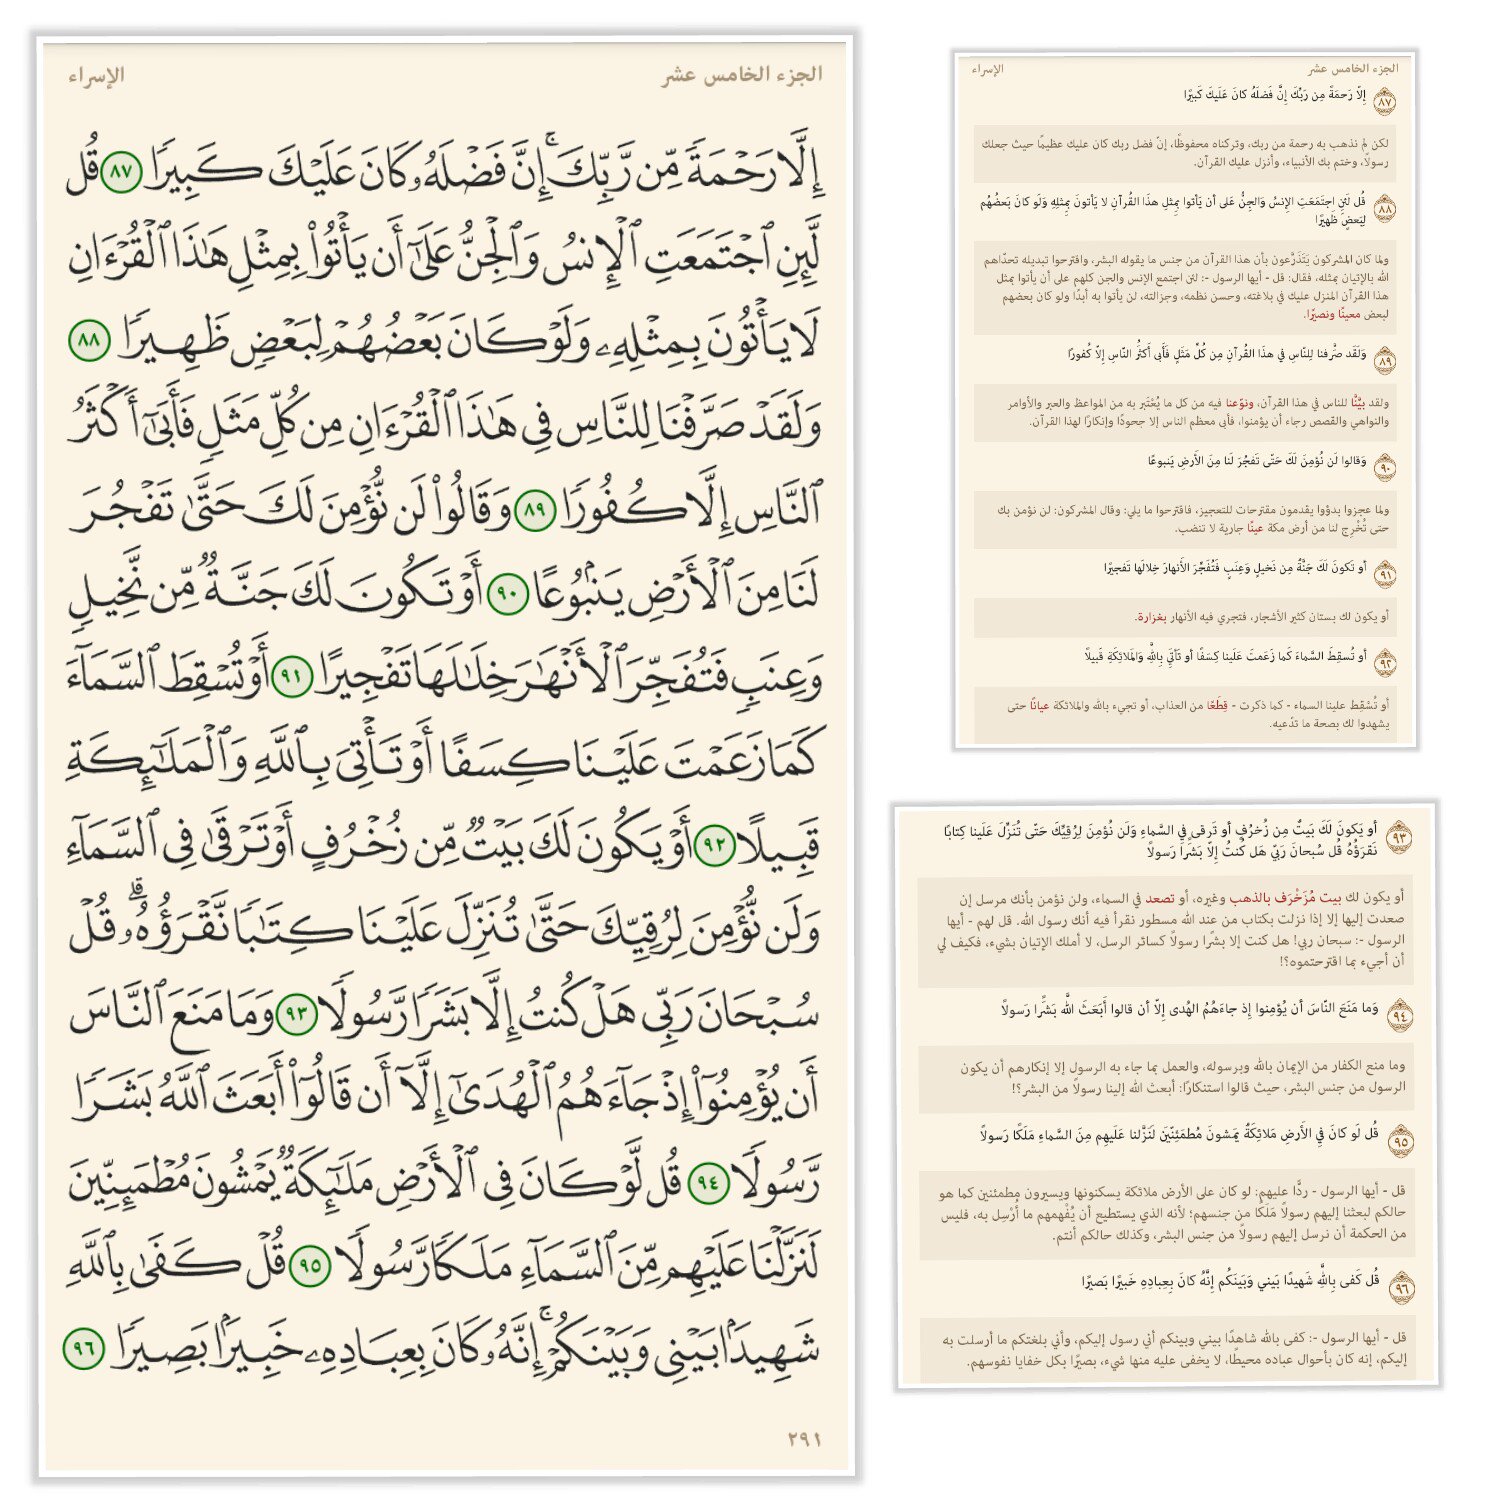 الإسراء
الجزء الخامس عشر
إِلَّا رَحْمَةً مِّن رَّبِّكَ ۚ إِنَّ فَضْلَهُۥ كَانَ عَلَيْكَ كَبِيرًا ٨٧ قُل
لَّئِنِ ٱجْتَمَعَتِ ٱلْإِنسُ وَٱلْجِنُّ عَلَىٰٓ أَن يَأْتُوا۟ بِمِثْلِ هَٰذَا ٱلْقُرْءَانِ
لَا يَأْتُونَ بِمِثْلِهِۦ وَلَوْ كَانَ بَعْضُهُمْ لِبَعْضٍ ظَهِيرًا ٨٨
وَلَقَدْ صَرَّفْنَا لِلنَّاسِ فِى هَٰذَا ٱلْقُرْءَانِ مِن كُلِّ مَثَلٍ فَأَبَىٰٓ أَكْثَرُ
ٱلنَّاسِ إِلَّا كُفُورًا ٨٩ وَقَالُوا۟ لَن نُّؤْمِنَ لَكَ حَتَّىٰ تَفْجُرَ
لَنَا مِنَ ٱلْأَرْضِ يَنۢبُوعًا ٩٠ أَوْ تَكُونَ لَكَ جَنَّةٌ مِّن نَّخِيلٍ
وَعِنَبٍ فَتُفَجِّرَ ٱلْأَنْهَٰرَ خِلَٰلَهَا تَفْجِيرًا ٩١ أَوْ تُسْقِطَ ٱلسَّمَآءَ
كَمَا زَعَمْتَ عَلَيْنَا كِسَفًا أَوْ تَأْتِىَ بِٱللَّهِ وَٱلْمَلَٰٓئِكَةِ
قَبِيلًا ٩٢ أَوْ يَكُونَ لَكَ بَيْتٌ مِّن زُخْرُفٍ أَوْ تَرْقَىٰ فِى ٱلسَّمَآءِ
وَلَن نُّؤْمِنَ لِرُقِيِّكَ حَتَّىٰ تُنَزِّلَ عَلَيْنَا كِتَٰبًا نَّقْرَؤُهُۥ ۗ قُلْ
سُبْحَانَ رَبِّى هَلْ كُنتُ إِلَّا بَشَرًا رَّسُولًا ٩٣ وَمَا مَنَعَ ٱلنَّاسَ
أَن يُؤْمِنُوٓا۟ إِذْ جَآءَهُمُ ٱلْهُدَىٰٓ إِلَّآ أَن قَالُوٓا۟ أَبَعَثَ ٱللَّهُ بَشَرًا
رَّسُولًا ٩٤ قُل لَّوْ كَانَ فِى ٱلْأَرْضِ مَلَٰٓئِكَةٌ يَمْشُونَ مُطْمَئِنِّينَ
لَنَزَّلْنَا عَلَيْهِم مِّنَ ٱلسَّمَآءِ مَلَكًا رَّسُولًا ٩٥ قُلْ كَفَىٰ بِٱللَّهِ
شَهِيدًۢا بَيْنِى وَبَيْنَكُمْ ۚ إِنَّهُۥ كَانَ بِعِبَادِهِۦ خَبِيرًۢا بَصِيرًا ٩٦
٢٩١
الإسراء
الجزء الخامس عشر
٨٧ إِلّا رَحمَةً مِن رَبِّكَ إِنَّ فَضلَهُ كانَ عَلَيكَ كَبيرًا
لكن لم نذهب به رحمة من ربك، وتركناه محفوظًا، إنّ فضل ربك كان عليك عظيمًا حيث جعلك
رسولًا، وختم بك الأنبياء، وأنزل عليك القرآن.
٨٨ قُل لَئِنِ اجتَمَعَتِ الإِنسُ وَالجِنُّ عَلى أَن يَأتوا بِمِثلِ هذَا القُرآنِ لا يَأتونَ بِمِثلِهِ وَلَو كانَ بَعضُهُم
لِبَعضٍ ظَهيرًا
ولما كان المشركون يَتَذَرَّعون بأن هذا القرآن من جنس ما يقوله البشر، واقترحوا تبديله تحدّاهم
الله بالإتيان بمثله، فقال: قل - أيها الرسول -: لئن اجتمع الإنس والجن كلهم على أن يأتوا بمثل
هذا القرآن المنزل عليك في بلاغته، وحسن نظمه، وجزالته، لن يأتوا به أبدًا ولو كان بعضهم
لبعض معينًا ونصيرًا.
٨٩ وَلَقَد صَرَّفنا لِلنّاسِ في هذَا القُرآنِ مِن كُلِّ مَثَلٍ فَأَبى أَكثَرُ النّاسِ إِلّا كُفورًا
ولقد بيَّنَّا للناس في هذا القرآن، ونوّعنا فيه من كل ما يُعْتَبر به من المواعظ والعبر والأوامر
والنواهي والقصص رجاء أن يؤمنوا، فأبى معظم الناس إلا جحودًا وإنكارًا لهذا القرآن.
٩٠ وَقالوا لَن نُؤمِنَ لَكَ حَتّى تَفجُرَ لَنا مِنَ الأَرضِ يَنبوعًا
ولما عجزوا بدؤوا يقدمون مقترحات للتعجيز، فاقترحوا ما يلي: وقال المشركون: لن نؤمن بك
حتى تُخْرِج لنا من أرض مكة عينًا جارية لا تنضب.
٩١ أَو تَكونَ لَكَ جَنَّةٌ مِن نَخيلٍ وَعِنَبٍ فَتُفَجِّرَ الأَنهارَ خِلالَها تَفجيرًا
أو يكون لك بستان كثير الأشجار، فتجري فيه الأنهار بغزارة.
٩٢ أَو تُسقِطَ السَّماءَ كَما زَعَمتَ عَلَينا كِسَفًا أَو تَأتِيَ بِاللَّهِ وَالمَلائِكَةِ قَبيلًا
أو تُسْقِط علينا السماء - كما ذكرت - قِطَعًا من العذاب، أو تجيء بالله والملائكة عيانًا حتى
يشهدوا لك بصحة ما تدّعيه.
٩٣ أَو يَكونَ لَكَ بَيتٌ مِن زُخرُفٍ أَو تَرقى فِي السَّماءِ وَلَن نُؤمِنَ لِرُقِيِّكَ حَتّى تُنَزِّلَ عَلَينا كِتابًا
نَقرَؤُهُ قُل سُبحانَ رَبّي هَل كُنتُ إِلّا بَشَرًا رَسولًا
أو يكون لك بيت مُزَخْرَف بالذهب وغيره، أو تصعد في السماء، ولن نؤمن بأنك مرسل إن
صعدت إليها إلا إذا نزلت بكتاب من عند الله مسطور نقرأ فيه أنك رسول الله. قل لهم - أيها
الرسول -: سبحان ربي! هل كنت إلا بشرًا رسولًا كسائر الرسل، لا أملك الإتيان بشيء، فكيف لي
أن أجيء بما اقترحتموه؟!
٩٤ وَما مَنَعَ النّاسَ أَن يُؤمِنوا إِذ جاءَهُمُ الهُدى إِلّا أَن قالوا أَبَعَثَ اللَّهُ بَشَرًا رَسولًا
وما منع الكفار من الإيمان بالله وبرسوله، والعمل بما جاء به الرسول إلا إنكارهم أن يكون
الرسول من جنس البشر، حيث قالوا استنكارًا: أبعث الله إلينا رسولًا من البشر؟!
٩٥ قُل لَو كانَ فِي الأَرضِ مَلائِكَةٌ يَمشونَ مُطمَئِنّينَ لَنَزَّلنا عَلَيهِم مِنَ السَّماءِ مَلَكًا رَسولًا
قل - أيها الرسول - ردًّا عليهم: لو كان على الأرض ملائكة يسكنونها ويسيرون مطمئنين كما هو
حالكم لبعثنا إليهم رسولًا مَلَكًا من جنسهم؛ لأنه الذي يستطيع أن يُفْهمهم ما أُرْسِل به، فليس
من الحكمة أن نرسل إليهم رسولًا من جنس البشر، وكذلك حالكم أنتم.
٩٦ قُل كَفى بِاللَّهِ شَهيدًا بَيني وَبَينَكُم إِنَّهُ كانَ بِعِبادِهِ خَبيرًا بَصيرًا
قل - أيها الرسول -: كفى بالله شاهدًا بيني وبينكم أني رسول إليكم، وأني بلغتكم ما أرسلت به
إليكم، إنه كان بأحوال عباده محيطًا، لا يخفى عليه منها شيء، بصيرًا بكل خفايا نفوسهم.